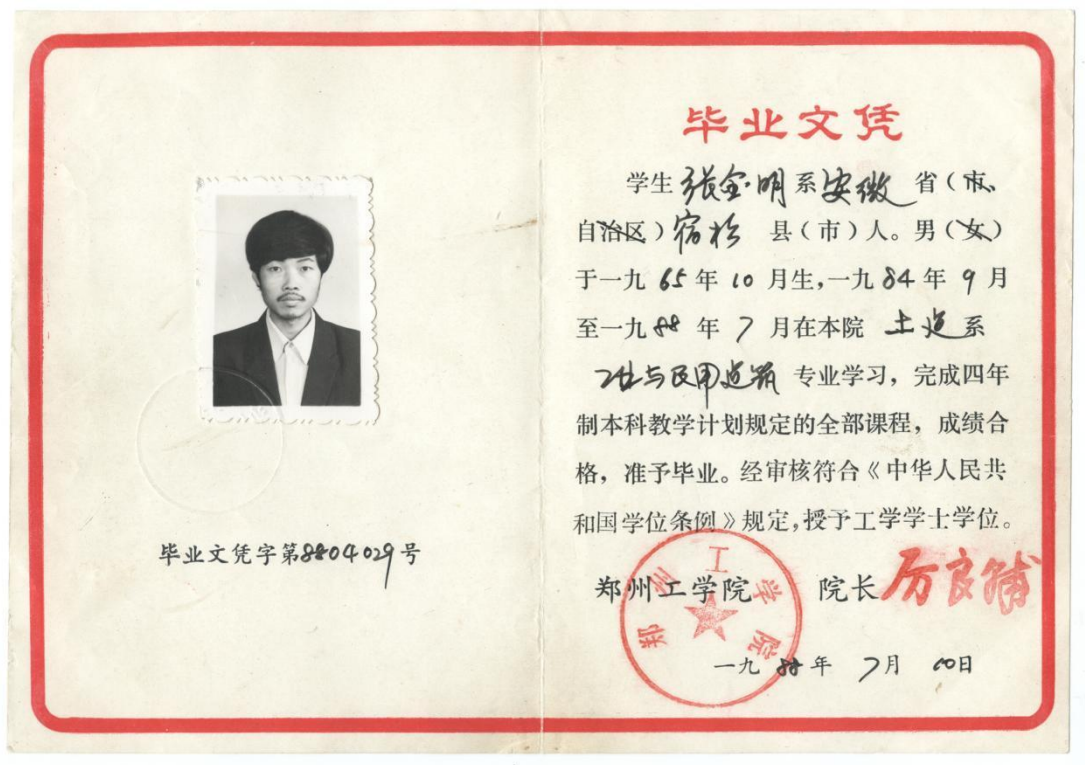 毕业文凭字第8804029号
毕业文凭
学生 张金明 系 安徽 省（市、
自治区）宿松 县（市）人。男（女）
于一九65年10月生，一九84年9月
至一九88年7月在本院 土建 系
工业与民用建筑 专业学习，完成四年
制本科教学计划规定的全部课程，成绩合
格，准予毕业。经审核符合《中华人民共
和国学位条例》规定，授予工学学士学位。
郑州工学院 院长 厉良辅
郑州工学院
一九88年7月10日